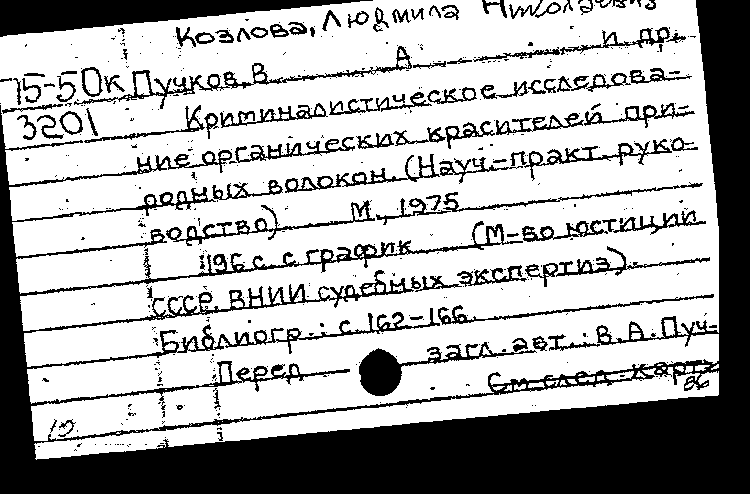 Козлова, Людмила Николаевна
75-50к Пучков, В А и др.
3201 Криминалистическое исследова-
ние органических красителей при-
родных волокон. (Науч.-практ. руко-
водство) М., 1975
196 с. с график (М-во юстиции
СССР. ВНИИ судебных экспертиз).
Библиогр.: с. 162-166.
Перед загл. авт.: В. А. Пуч-
См след. карт